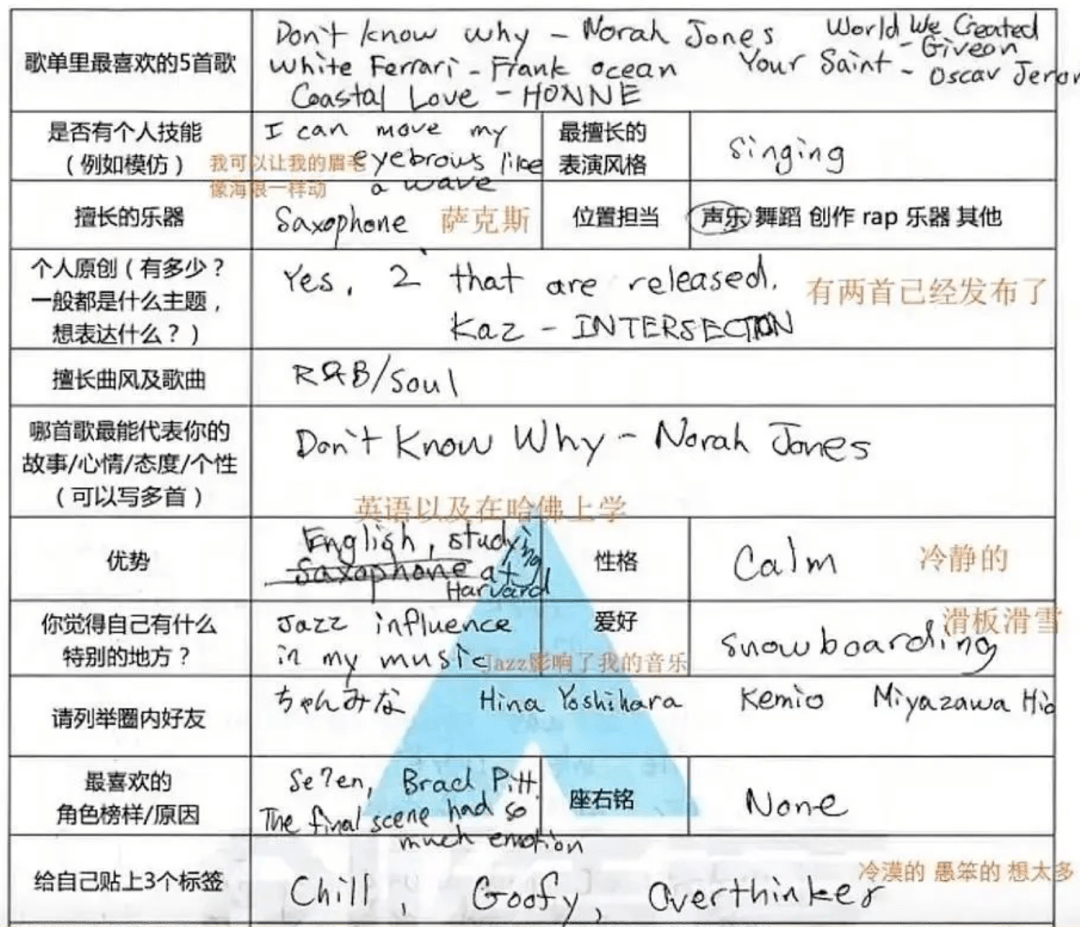 歌单里最喜欢的5首歌
Don't know why - Norah Jones
World We Created - Giveon
White Ferrari - Frank ocean
Your Saint - Oscar Jerom
Coastal Love - HONNE
是否有个人技能
（例如模仿）
I can move my
eyebrows like
a wave
我可以让我的眉毛
像海浪一样动
最擅长的
表演风格
Singing
擅长的乐器
Saxophone 萨克斯
位置担当
声乐 舞蹈 创作 rap 乐器 其他
个人原创（有多少？
一般都是什么主题，
想表达什么？）
Yes, 2 that are released.
Kaz - INTERSECTION
有两首已经发布了
擅长曲风及歌曲
R&B/Soul
哪首歌最能代表你的
故事/心情/态度/个性
（可以写多首）
Don't Know Why - Norah Jones
优势
英语以及在哈佛上学
English, studying
Saxophone at
Harvard
性格
Calm 冷静的
你觉得自己有什么
特别的地方？
Jazz influence
in my music
Jazz影响了我的音乐
爱好
snowboarding
滑板滑雪
请列举圈内好友
ちゃんみな Hina Yoshihara Kemio Miyazawa Hio
最喜欢的
角色榜样/原因
Se7en, Brad Pitt.
The final scene had so
much emotion
座右铭
None
给自己贴上3个标签
Chill, Goofy, Overthinker
冷漠的 愚笨的 想太多